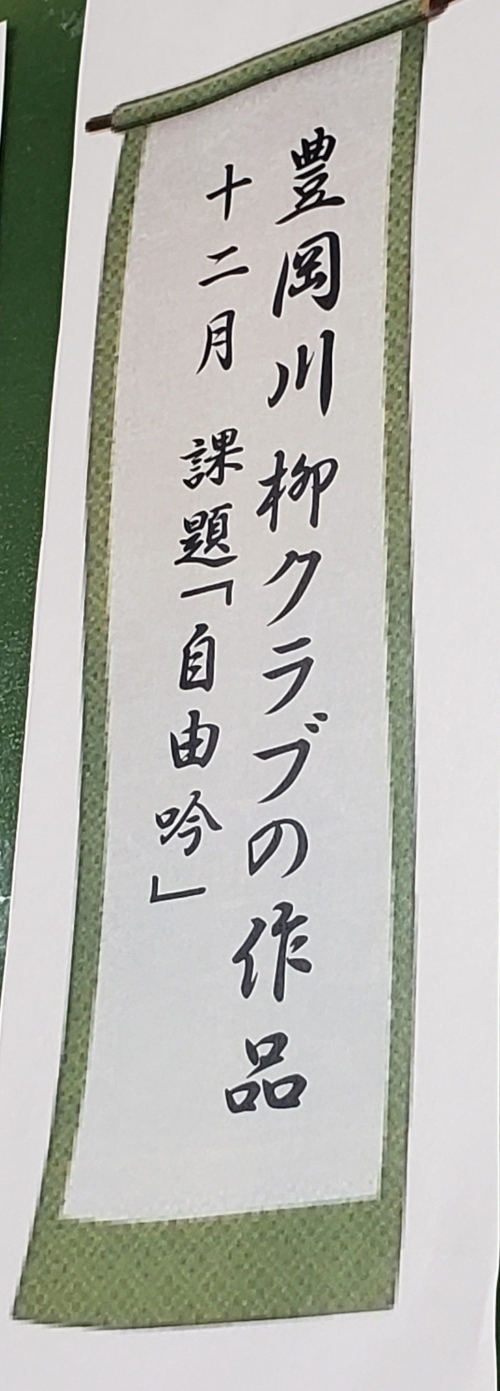 豊岡川柳クラブの作品
十二月 課題「自由吟」